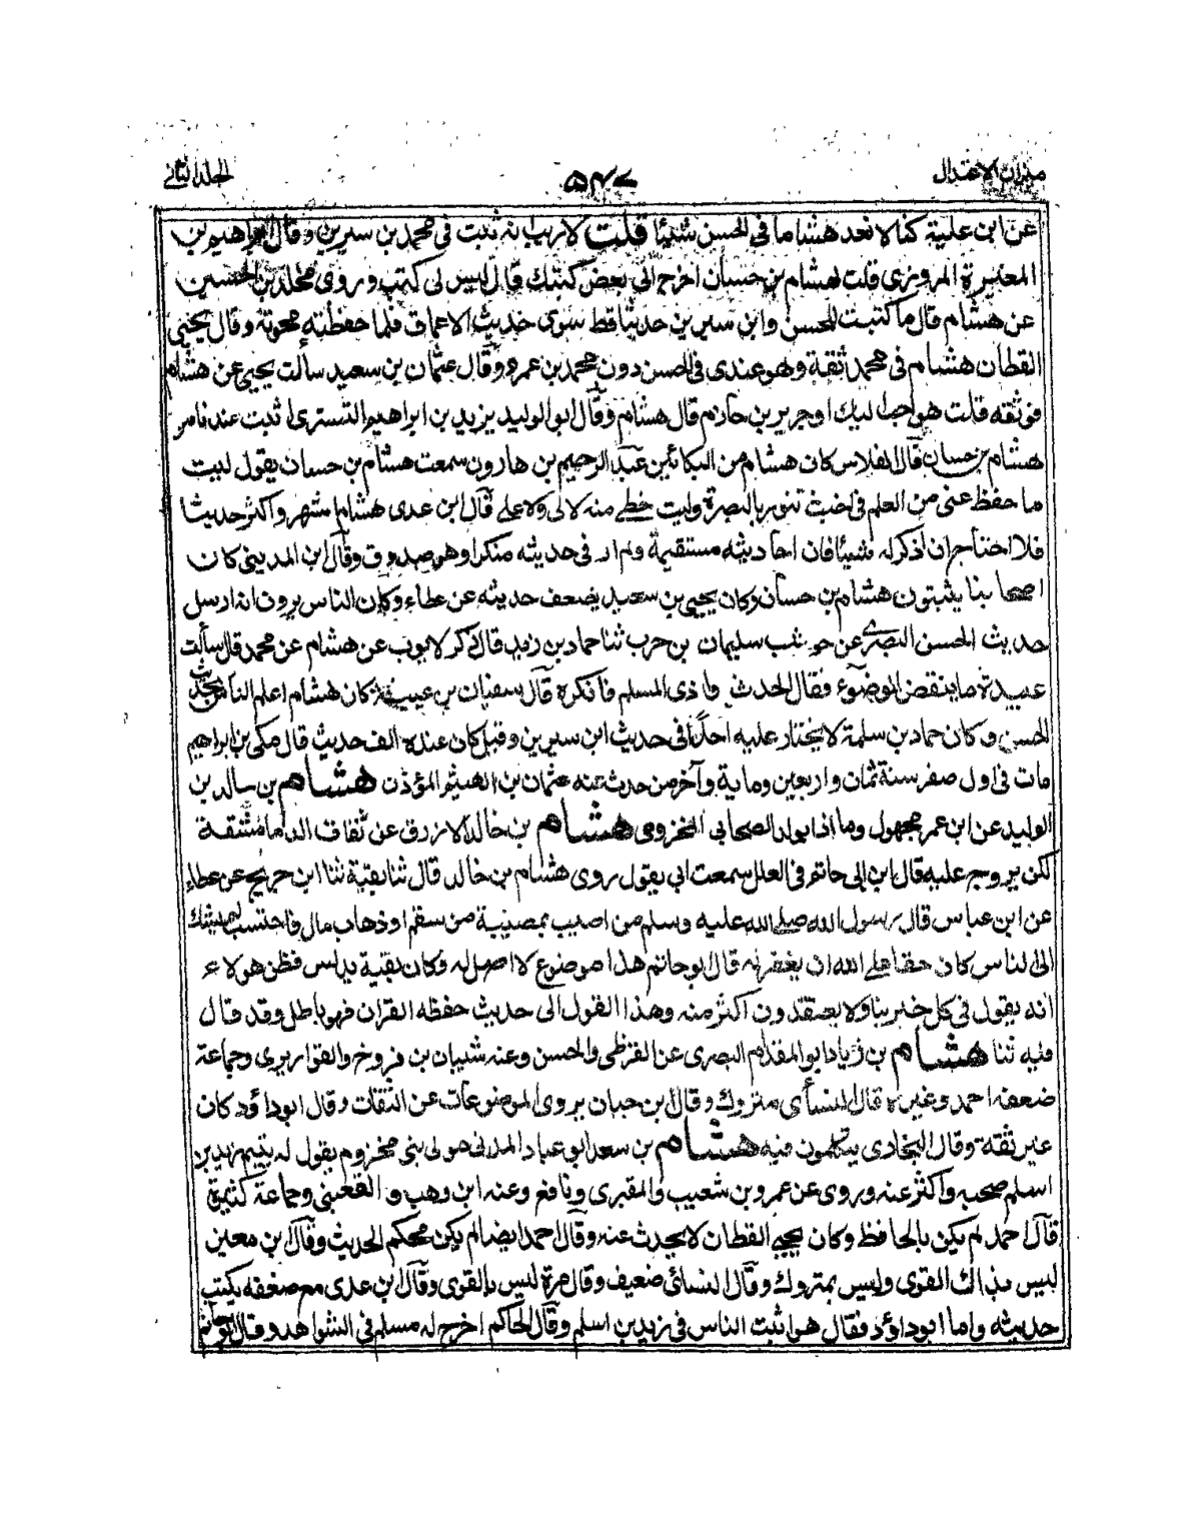 ميزان الاعتدال
٥٤٧
الجلد الثاني
عن ابن علية كنا لا نعد هشاما في الحسن شيئا قلت لا ريب انه ثبت في محمد بن سيرين وقال ابراهيم بن
المغيرة المروزي قلت لهشام بن حسان اخرج الى بعض كتبك قال ليس لى كتب وروى مخلد بن الحسين
عن هشام قال ما كتبت للحسن وابن سيرين حديثا قط سوى حديث الاعماق فلما حفظته محوته وقال يحيى
القطان هشام فى محمد ثقة وهو عندى فى الحسن دون محمد بن عمرو وقال عثمان بن سعيد سألت يحيى عن هشام
فوثقه قلت هو احب اليك او جرير بن حازم قال هشام وقال ابو الوليد يزيد بن ابراهيم التسترى اثبت عندنا من
هشام بن حسان قال الفلاس كان هشام من البكائين عبد الرحيم بن هارون سمعت هشام بن حسان يقول ليت
ما حفظ عنى من العلم فى اخبث تنور بالبصرة وليت حظي منه لا لى ولا على قال ابن عدى هشام اشهر واكثر حديثا
فلا احتاج ان اذكر له شيئا فان احاديثه مستقيمة ولم ار فى حديثه منكرا وهو صدوق وقال ابن المدينى كان
اصحابنا يثبتون هشام بن حسان وكان يحيى بن سعيد يضعف حديثه عن عطاء وكان الناس يرون انه ارسل
حديث الحسن البصرى عن حوشب سليمان بن حرب ثنا حماد بن زيد قال ذكر لايوب عن هشام عن محمد قال سألت
عبيدة ما ينقض الوضوء فقال الحدث واذى المسلم فانكره قال سفيان بن عيينة كان هشام اعلم الناس بحديث
الحسن وكان حماد بن سلمة لا يختار عليه احدا فى حديث ابن سيرين وقيل كان عنده الف حديث قال مكى بن ابراهيم
مات فى اول صفر سنة ثمان واربعين وماية وآخر من حدث عنه عثمان بن الهيثم المؤذن هشام بن خالد بن
الوليد عن ابن عمر مجهول وما اذا بولد الصحابى المخزومى هشام بن خالد الازرق عن ثقات الدماشقة
لكن يروج عليه قال ابن ابى حاتم فى العلل سمعت ابى يقول روى هشام بن خالد قال ثنا بقية ثنا ابن جريج عن عطاء
عن ابن عباس قال رسول الله صلى الله عليه وسلم من اصيب بمصيبة من سقم او ذهاب مال فاحتسب ولم يشك
الى الناس كان حقا على الله ان يغفر له قال ابو حاتم هذا موضوع لا اصل له وكان بقية يدلس فظن هولاء
انه يقول فى كل خبر ثنا ولا يعتقدون اكثر منه وهذا القول الى حديث حفظه القران فهو باطل وقد قال
فيه ثنا هشام بن زياد ابو المقدام البصرى عن القرظى والحسن وعنه شيبان بن فروخ والقواريرى وجماعة
ضعفه احمد وغيره قال النسأى متروك وقال ابن حبان يروى الموضوعات عن الثقات وقال ابو داؤد كان
غير ثقة وقال البخارى يتكلمون فيه هشام بن سعد ابو عباد المدنى مولى بنى مخزوم يقول له يتيم زيد بن
اسلم صحبه واكثر عنه وروى عن عمرو بن شعيب والمقبرى ونافع وعنه ابن وهب والقعنبى وجماعة كثيرة
قال احمد لم يكن بالحافظ وكان يحيى القطان لا يحدث عنه وقال احمد ايضا لم يكن محكم الحديث وقال ابن معين
ليس بذاك القوى وليس بمتروك وقال النسائى ضعيف وقال مرة ليس بالقوى وقال ابن عدى مع ضعفه يكتب
حديثه واما ابو داؤد فقال هو اثبت الناس فى زيد بن اسلم وقال الحاكم اخرج له مسلم فى الشواهد وقال ابو حاتم